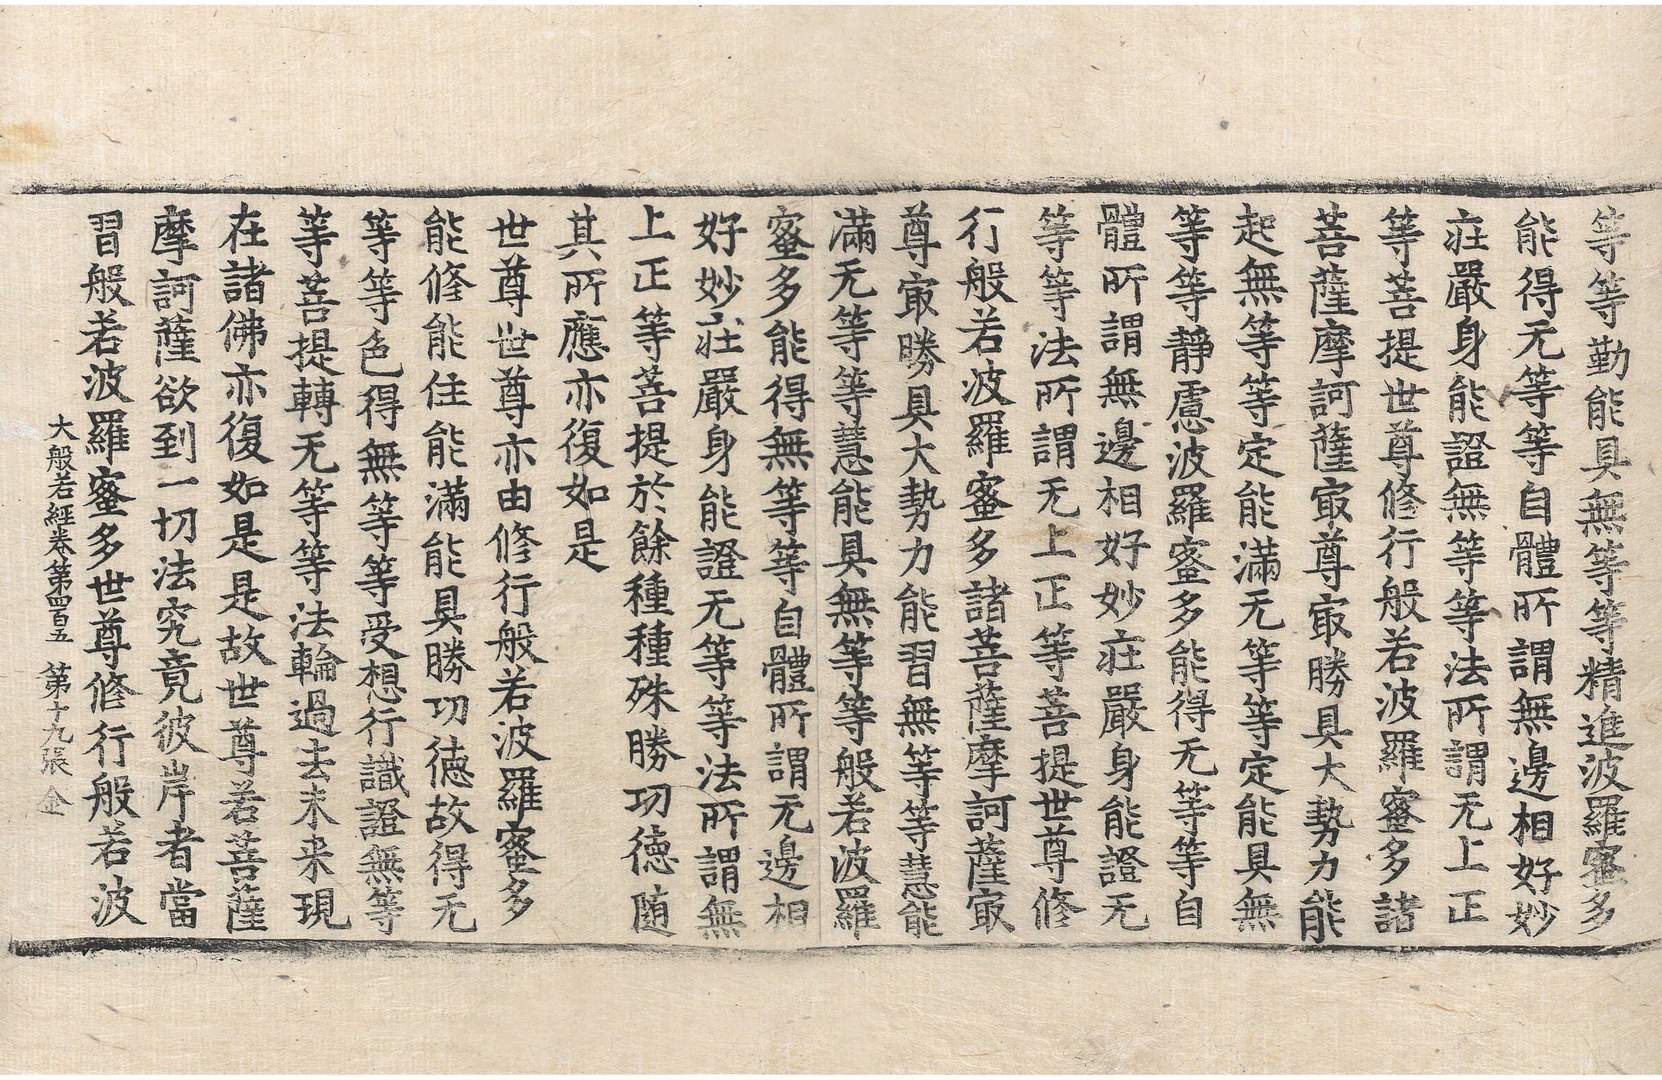 等等勤能具無等等精進波羅蜜多
能得无等等自體所謂無邊相好妙
莊嚴身能證無等等法所謂无上正
等菩提世尊修行般若波羅蜜多諸
菩薩摩訶薩㝡尊㝡勝具大勢力能
起無等等定能滿无等等定能具無
等等靜慮波羅蜜多能得无等等自
體所謂無邊相好妙莊嚴身能證无
等等法所謂无上正等菩提世尊修
行般若波羅蜜多諸菩薩摩訶薩㝡
尊㝡勝具大勢力能習無等等慧能
滿无等等慧能具無等等般若波羅
蜜多能得無等等自體所謂无邊相
好妙莊嚴身能證无等等法所謂無
上正等菩提於餘種種殊勝功德随
其所應亦復如是
世尊世尊亦由修行般若波羅蜜多
能修能住能滿能具勝功德故得无
等等色得無等等受想行識證無等
等菩提轉无等等法輪過去未来現
在諸佛亦復如是是故世尊若菩薩
摩訶薩欲到一切法究竟彼岸者當
習般若波羅蜜多世尊修行般若波
大般若經卷第四百五　第十九張　金